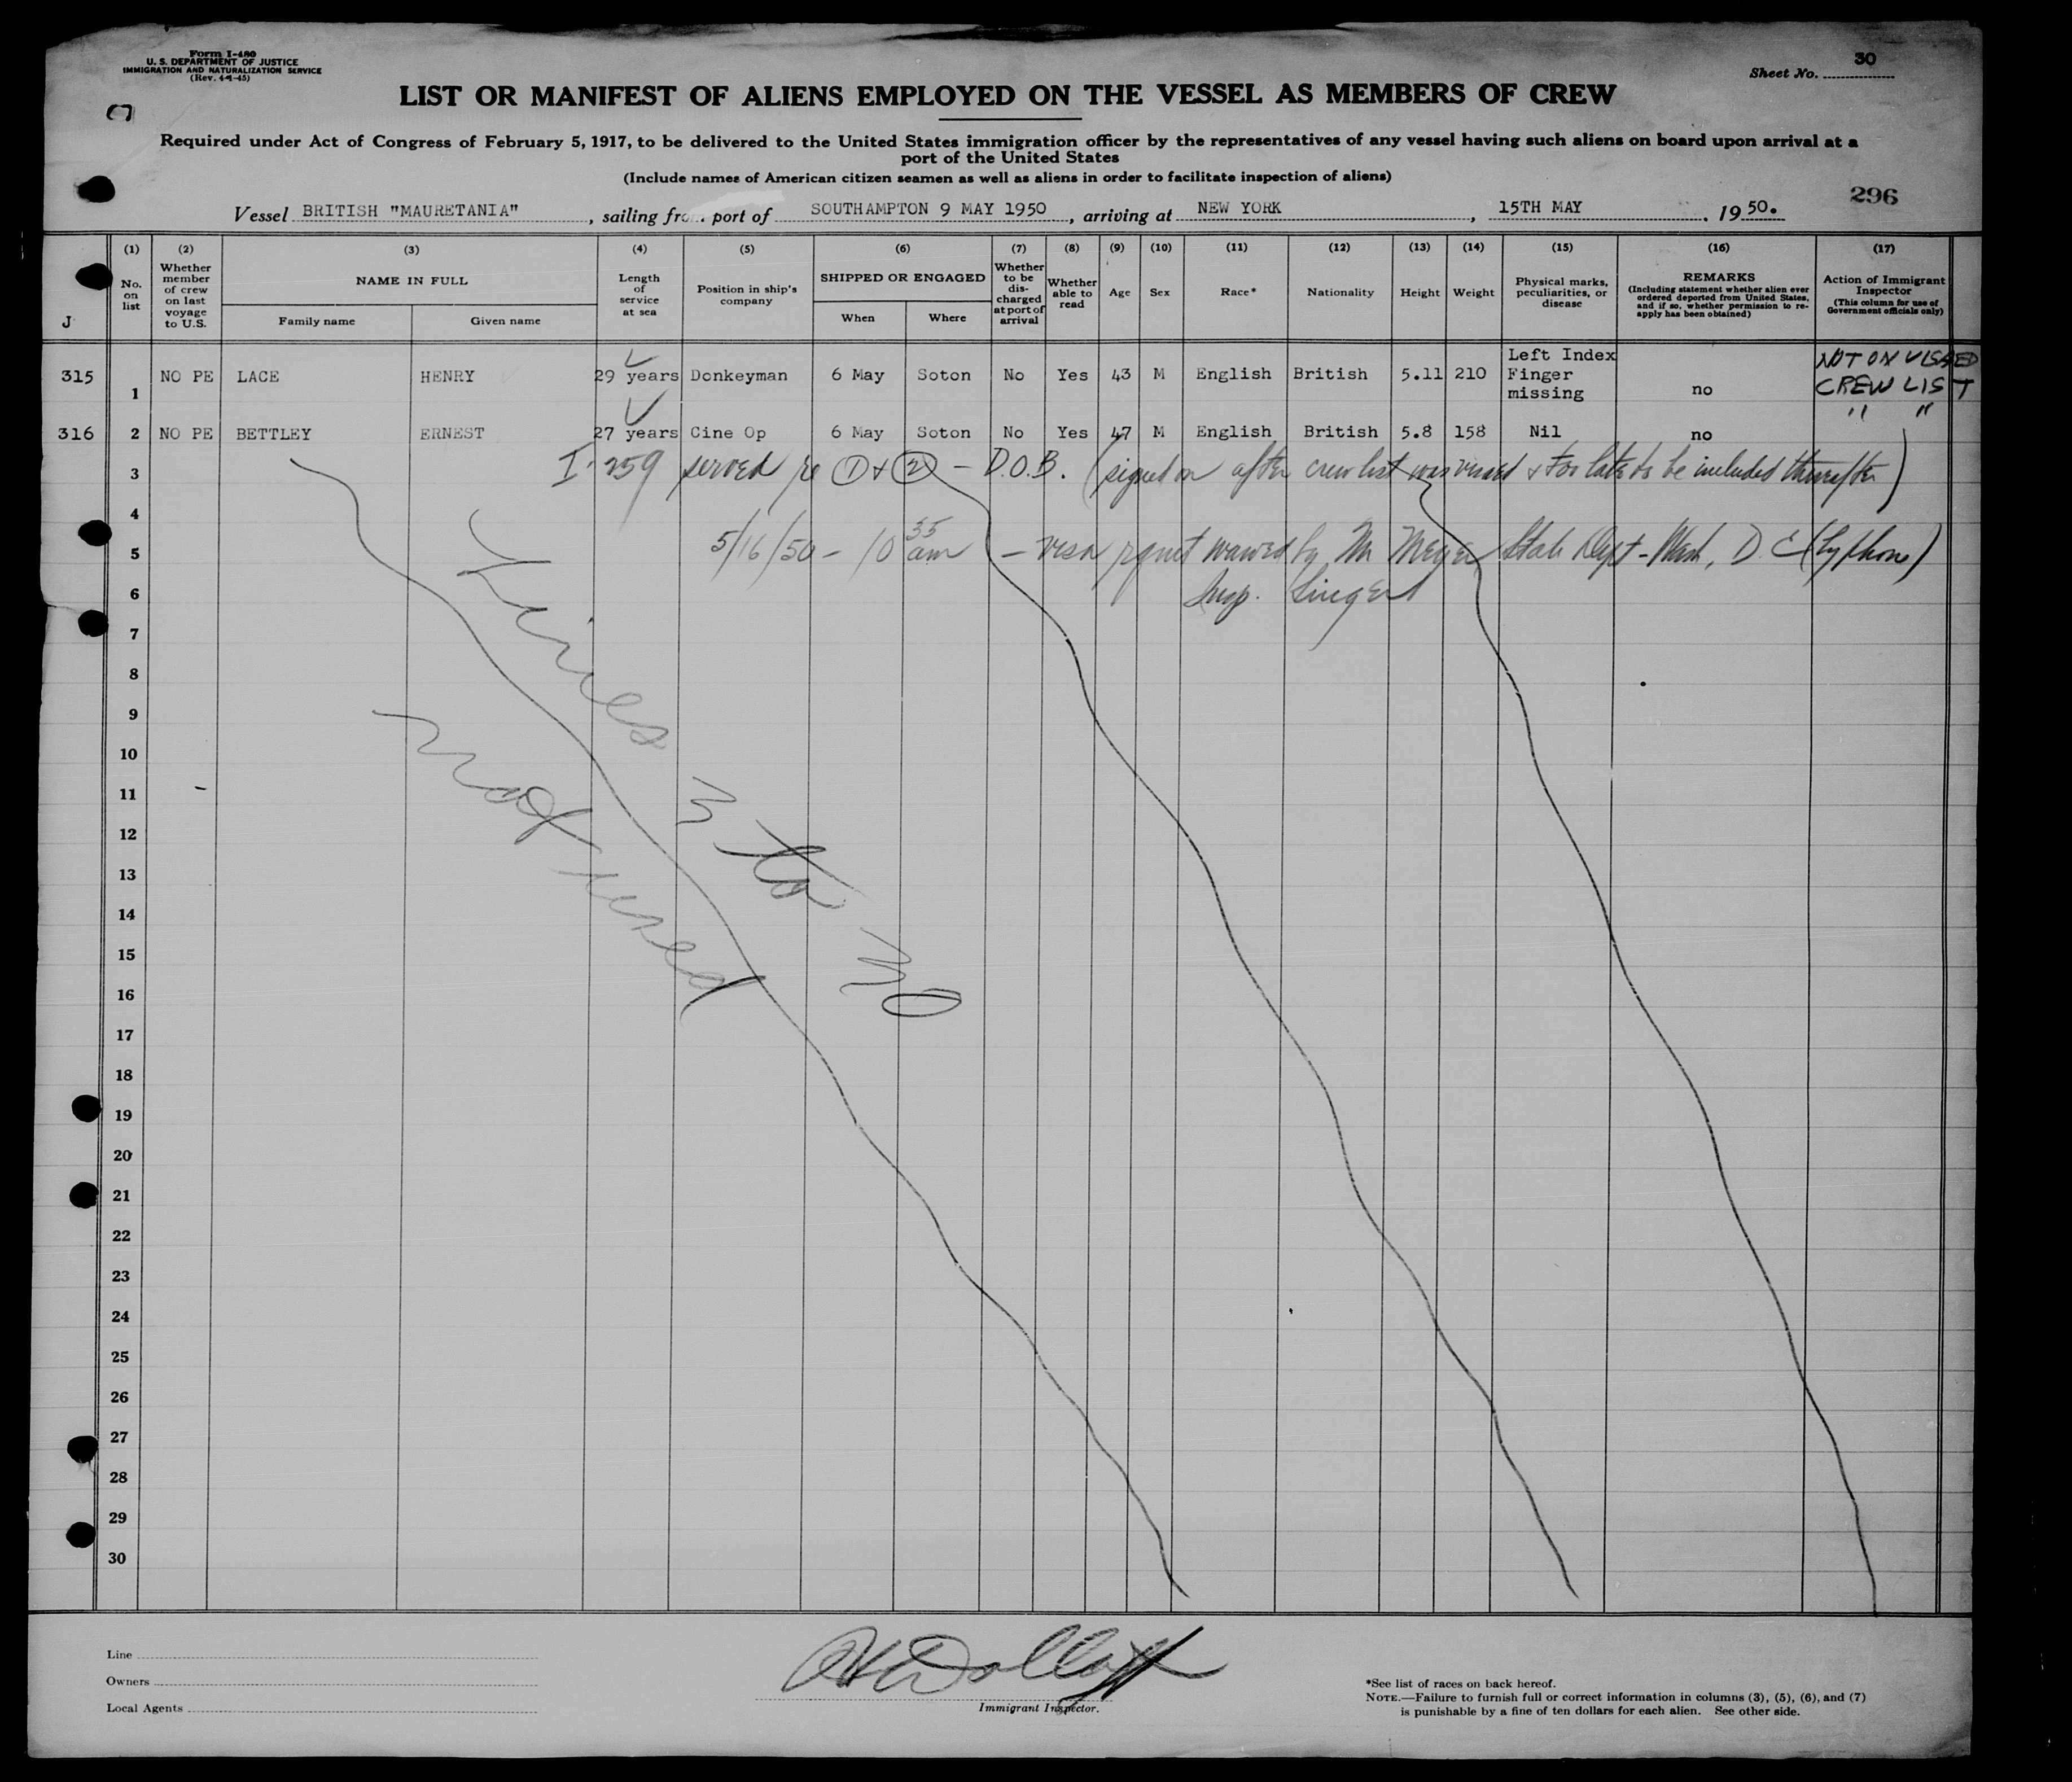 Form I-480
U. S. DEPARTMENT OF JUSTICE
IMMIGRATION AND NATURALIZATION SERVICE
(Rev. 4-1-45)
Sheet No. 30
LIST OR MANIFEST OF ALIENS EMPLOYED ON THE VESSEL AS MEMBERS OF CREW
Required under Act of Congress of February 5, 1917, to be delivered to the United States immigration officer by the representatives of any vessel having such aliens on board upon arrival at a
port of the United States
(Include names of American citizen seamen as well as aliens in order to facilitate inspection of aliens)
296
Vessel BRITISH "MAURETANIA", sailing from port of SOUTHAMPTON 9 MAY 1950, arriving at NEW YORK, 15TH MAY. 1950.
(1) (2) (3) (4) (5) (6) (7) (8) (9) (10) (11) (12) (13) (14) (15) (16) (17)
No. on list
Whether member of crew on last voyage to U.S.
NAME IN FULL
Family name
Given name
Length of service at sea
Position in ship's company
SHIPPED OR ENGAGED
When
Where
Whether to be discharged at port of arrival
Whether able to read
Age
Sex
Race*
Nationality
Height
Weight
Physical marks, peculiarities, or disease
REMARKS
(Including statement whether alien ever ordered deported from United States, and if so, whether permission to reapply has been obtained)
Action of Immigrant Inspector
(This column for use of Government officials only)
J
315 1 NO PE LACE HENRY 29 years Donkeyman 6 May Soton No Yes 43 M English British 5.11 210 Left Index Finger missing no NOT ON VISSED CREW LIST
316 2 NO PE BETTLEY ERNEST 27 years Cine Op 6 May Soton No Yes 47 M English British 5.8 158 Nil no " "
3 I-259 served re 1 & 2 - D.O.B. (signed on after crew list was visaed & too late to be included thereafter)
4
5 5/16/50 - 10 35 am - visa rqmt waived by Mr Meyer State Dept - Wash, D.C (by phone)
6 Insp. Singer
7
8
9
10
11
12
13
14
15
16
17
18
19
20
21
22
23
24
25
26
27
28
29
30
Lines 3 to 30
not used
Line
Owners
Local Agents
Immigrant Inspector.
*See list of races on back hereof.
NOTE.—Failure to furnish full or correct information in columns (3), (5), (6), and (7)
is punishable by a fine of ten dollars for each alien. See other side.